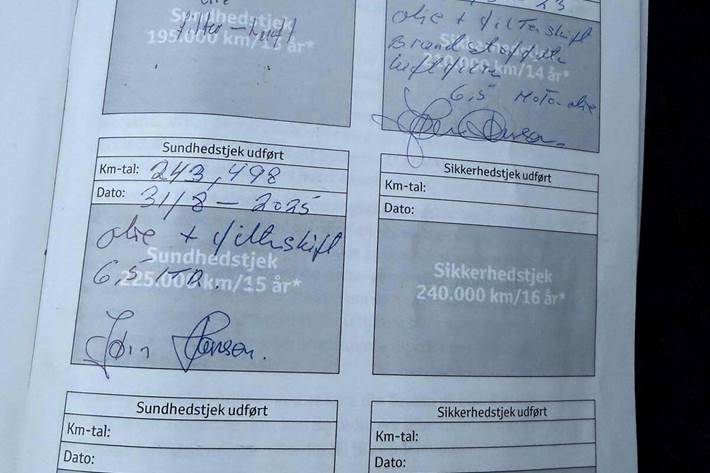 Sundhedstjek
195.000 km/13 år*
filter - luft
23
olie + filterskift
Brændstoffilter
luftfilter
km/14 år*
6,5 Motorolie
Sundhedstjek udført
Km-tal: 243,498
Dato: 31/8-2025
olie + filterskift
Sundhedstjek
6,5 LTR.
225.000 km/15 år*
Jørn Hansen.
Sikkerhedstjek udført
Km-tal:
Dato:
Sikkerhedstjek
240.000 km/16 år*
Sundhedstjek udført
Km-tal:
Dato:
Sikkerhedstjek udført
Km-tal:
Dato: